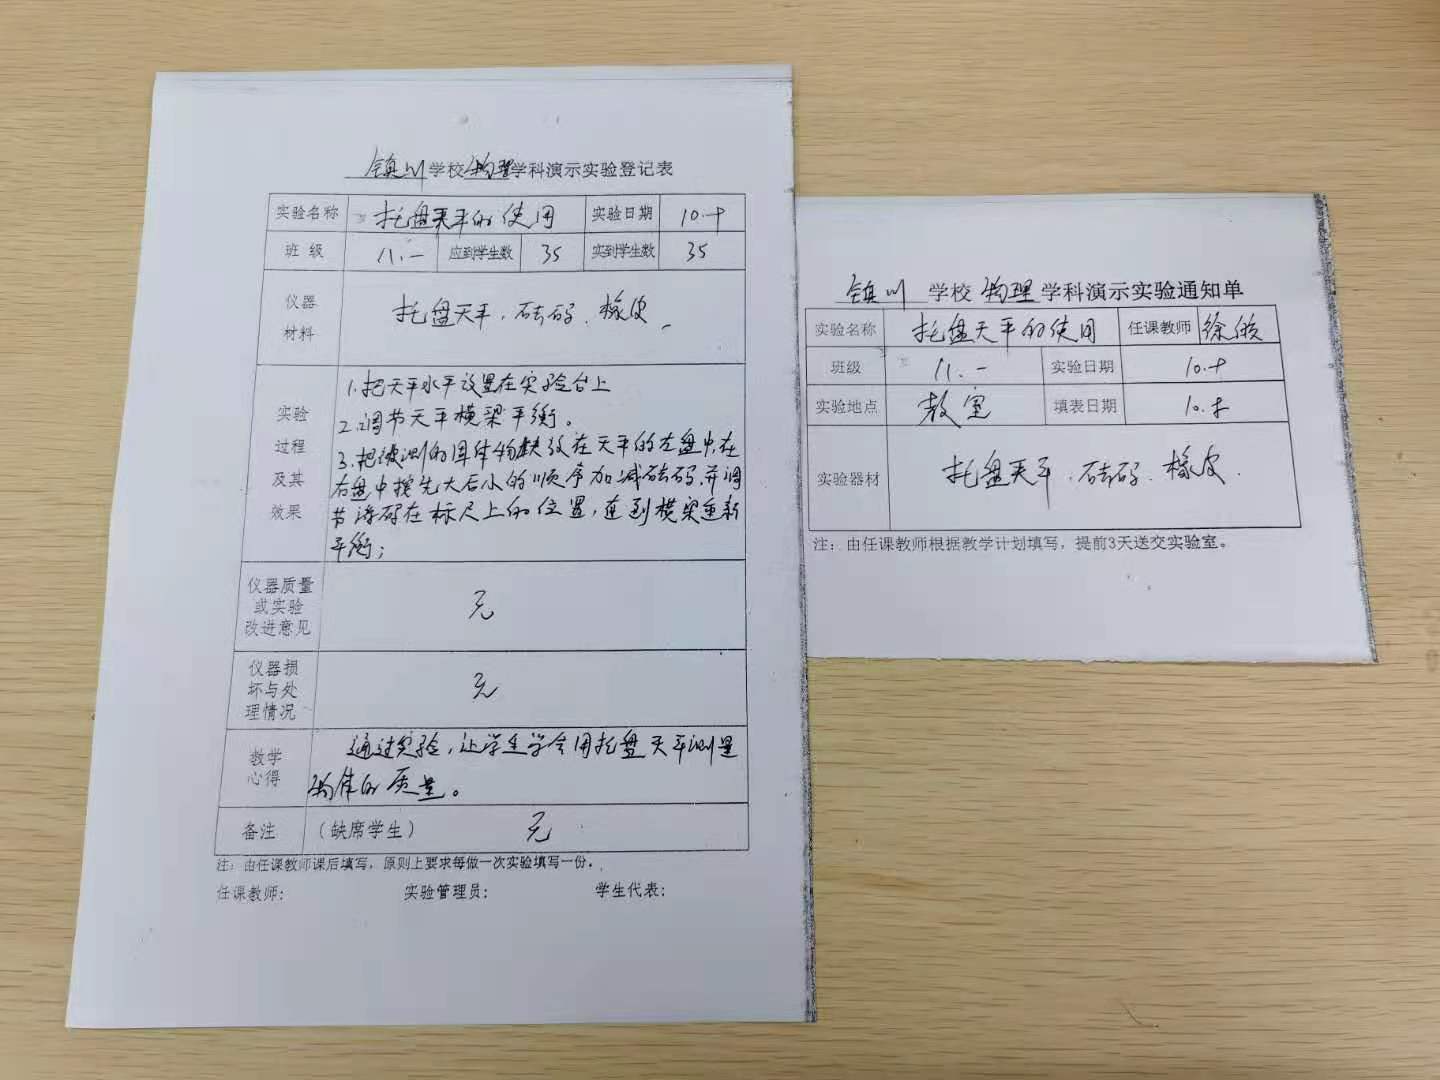 镇川学校物理学科演示实验登记表
实验名称 托盘天平的使用 实验日期 10.十
班 级 八.一 应到学生数 35 实到学生数 35
仪器材料 托盘天平、砝码、橡皮
实验过程及其效果
1.把天平水平放置在实验台上
2.调节天平横梁平衡。
3.把被测的固体物缺放在天平的左盘中,在
右盘中按先大后小的顺序加减砝码,并调
节游码在标尺上的位置,直到横梁重新
平衡;
仪器质量或实验改进意见 无
仪器损坏与处理情况 无
教学心得
通过实验,让学生学会用托盘天平测量
物体的质量。
备注 (缺席学生) 无
注:由任课教师课后填写,原则上要求每做一次实验填写一份。
任课教师: 实验管理员: 学生代表:
镇川 学校 物理 学科演示实验通知单
实验名称 托盘天平的使用 任课教师 徐
班级 八.一 实验日期 10.十
实验地点 教室 填表日期 10.
实验器材 托盘天平、砝码、橡皮.
注:由任课教师根据教学计划填写,提前3天送交实验室。